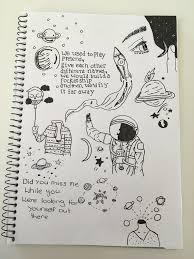 we used to play
pretend,
give each other
different names,
we would build a
rocketship
and then we'd fly
it far away
Did you miss me
while you
were looking for
yourself out
there